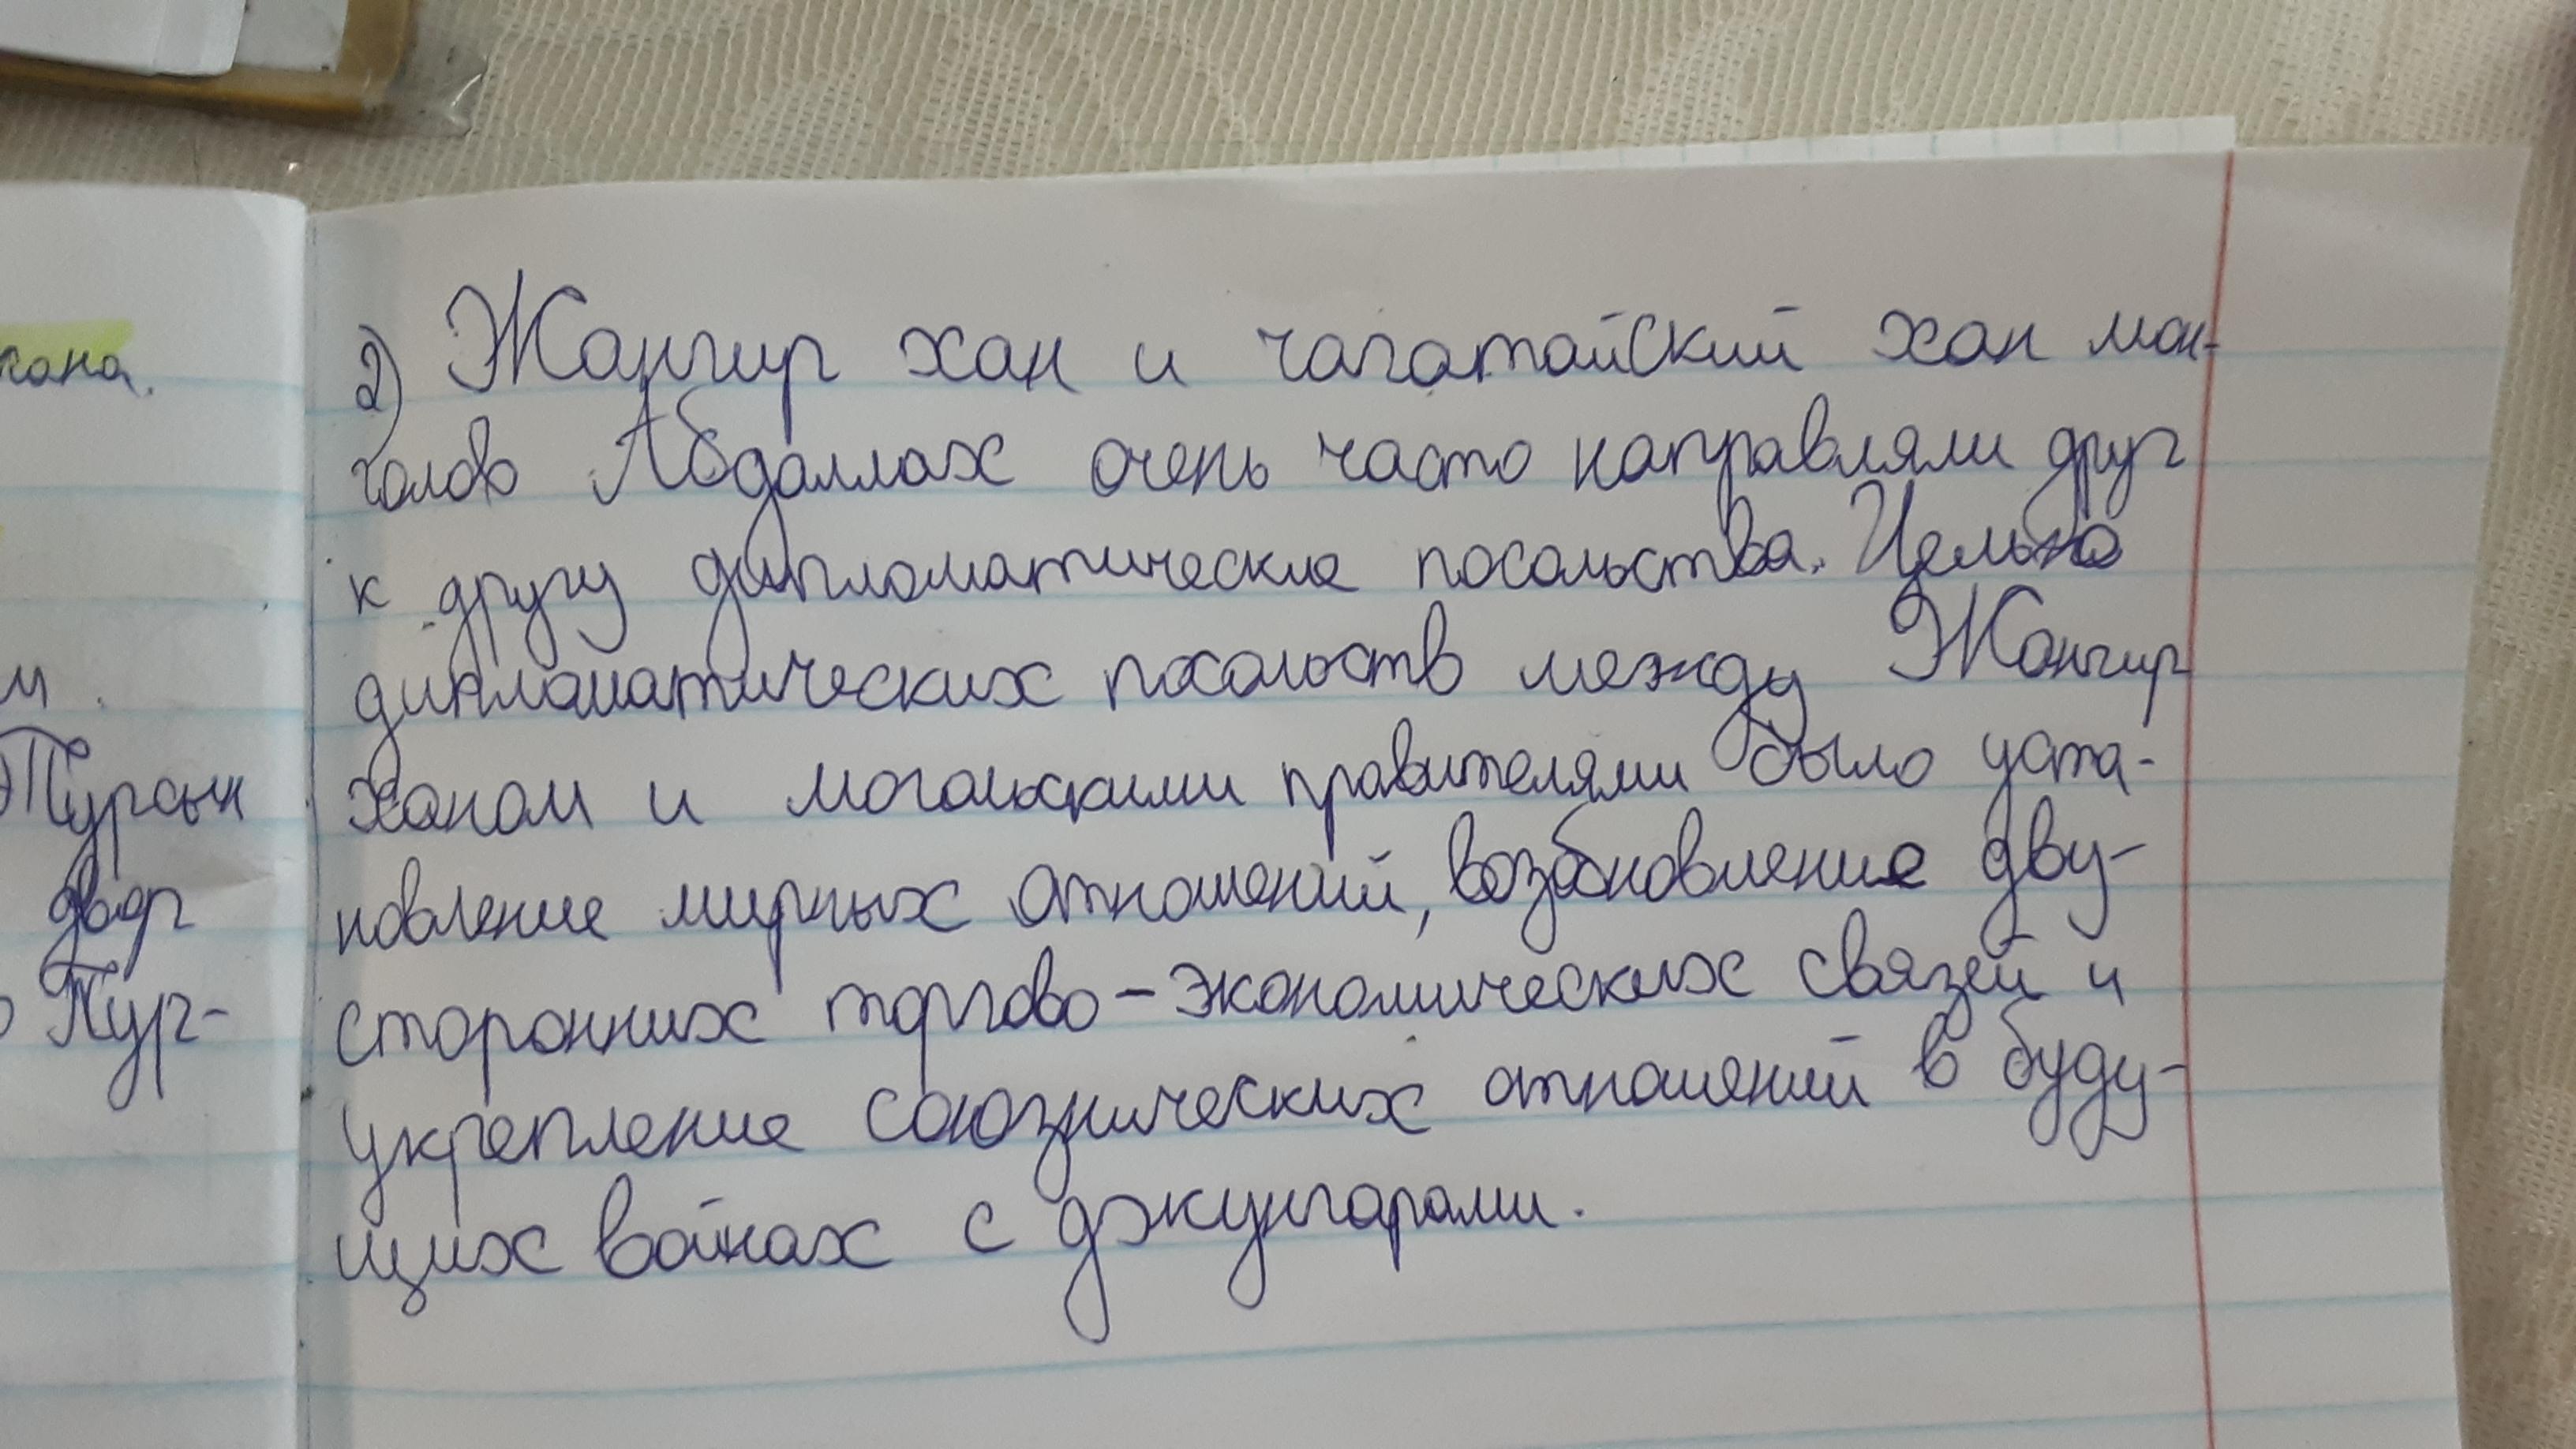 хана.
м.
Турсын
двор
Тур-
2) Жангир хан и чагатайский хан мон-
голов Абдаллах очень часто направляли друг
к другу дипломатические посольства. Целью
дипломатических посольств между Жангир
ханом и могольскими правителями было уста-
новление мирных отношений, возобновление дву-
сторонних торгово-экономических связей и
укрепление союзнических отношений в буду-
щих войнах с джунгарами.